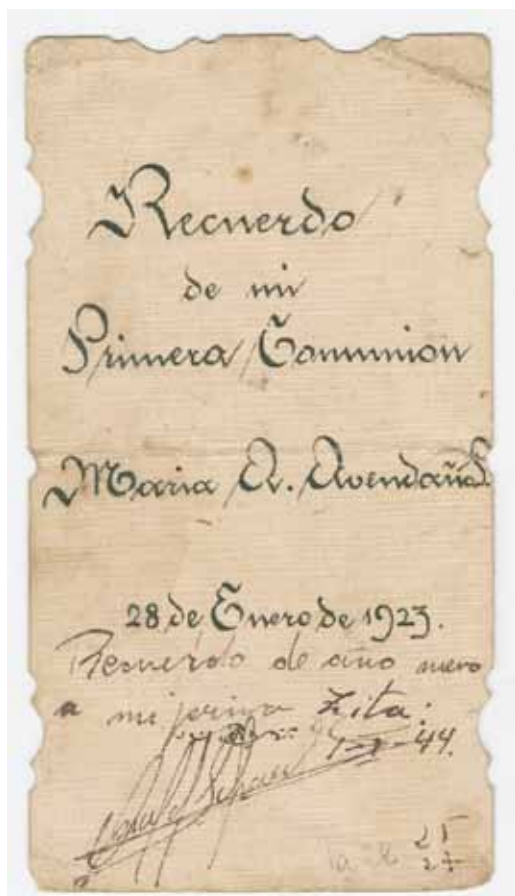 Recuerdo
de mi
Primera Comunion
Maria A. Avendaño
28 de Enero de 1923.
Recuerdo de año nuevo
a mi prima Zita:
44.
25
27